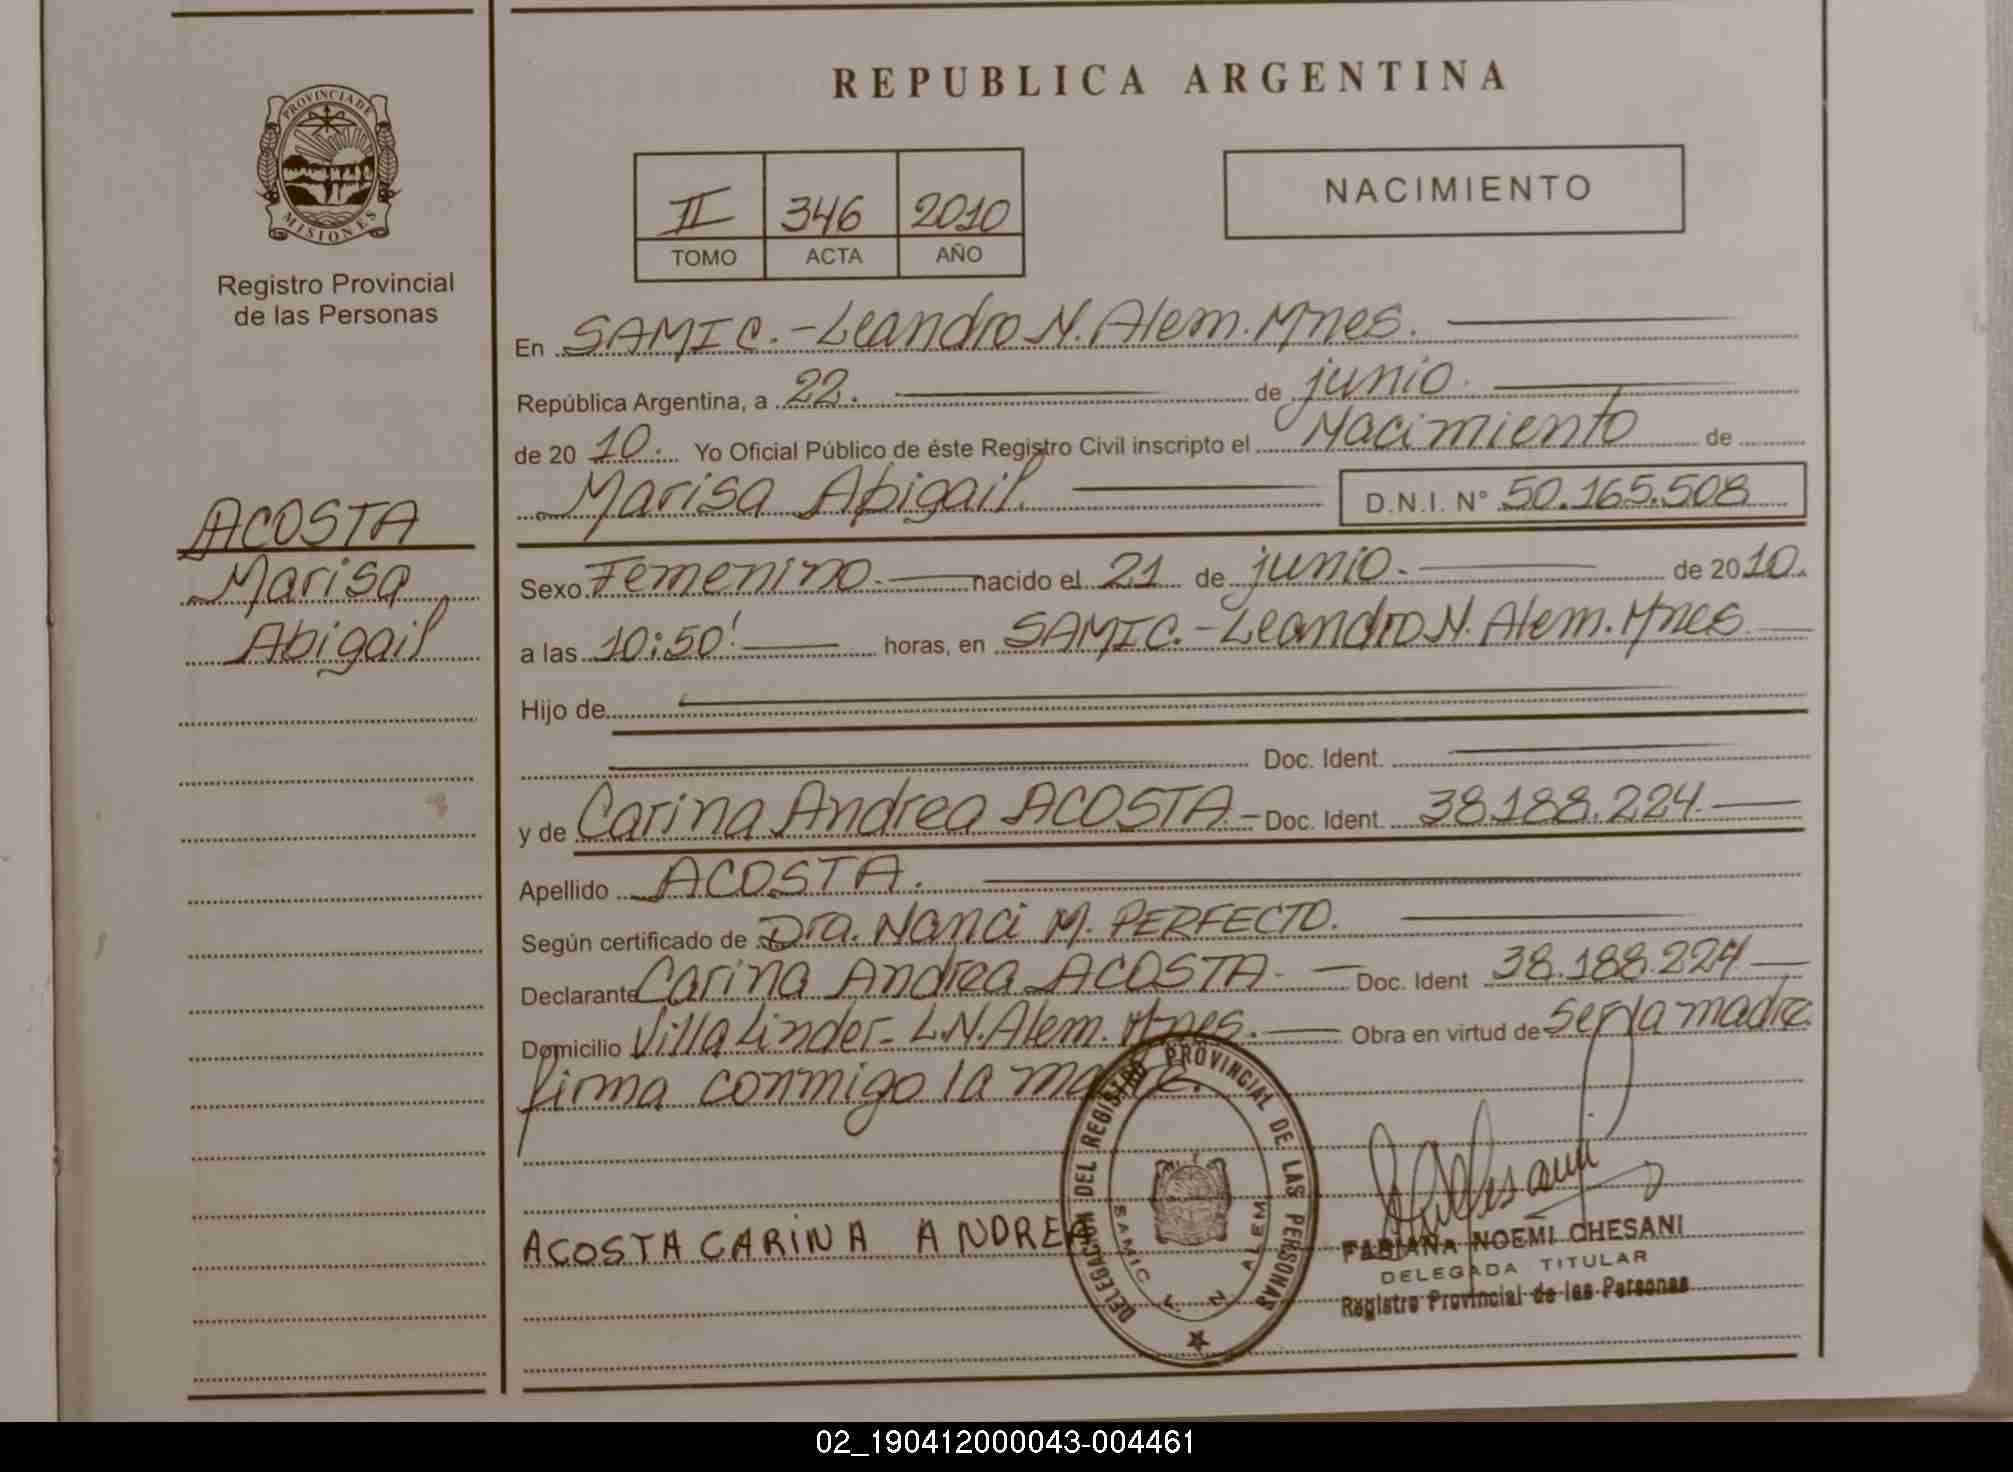 REPUBLICA ARGENTINA
PROVINCIA DE
MISIONES
Registro Provincial
de las Personas
II 346 2010
TOMO ACTA AÑO
NACIMIENTO
En SAMIC.-Leandro N. Alem. Mnes.
República Argentina, a 22. de junio.
de 20 10. Yo Oficial Público de éste Registro Civil inscripto el Nacimiento de
Marisa Abigail. D.N.I. N° 50.165.508
ACOSTA
Marisa
Abigail
Sexo Femenino. nacido el 21 de junio. de 2010.
a las 10:50' horas, en SAMIC.-Leandro N. Alem. Mnes.
Hijo de
Doc. Ident.
y de Carina Andrea ACOSTA.- Doc. Ident. 38.188.224.
Apellido ACOSTA.
Según certificado de Dra. Nanci M. PERFECTO.
Declarante Carina Andrea ACOSTA- Doc. Ident 38.188.224
Domicilio Villa Linder- L.N. Alem. Mnes. Obra en virtud de ser la madre
firma conmigo la madre.
ACOSTA CARINA ANDREA
DELEGACION DEL REGISTRO PROVINCIAL DE LAS PERSONAS
SAMIC L. N. ALEM
FABIANA NOEMI CHESANI
DELEGADA TITULAR
Registro Provincial de las Personas
02_190412000043-004461